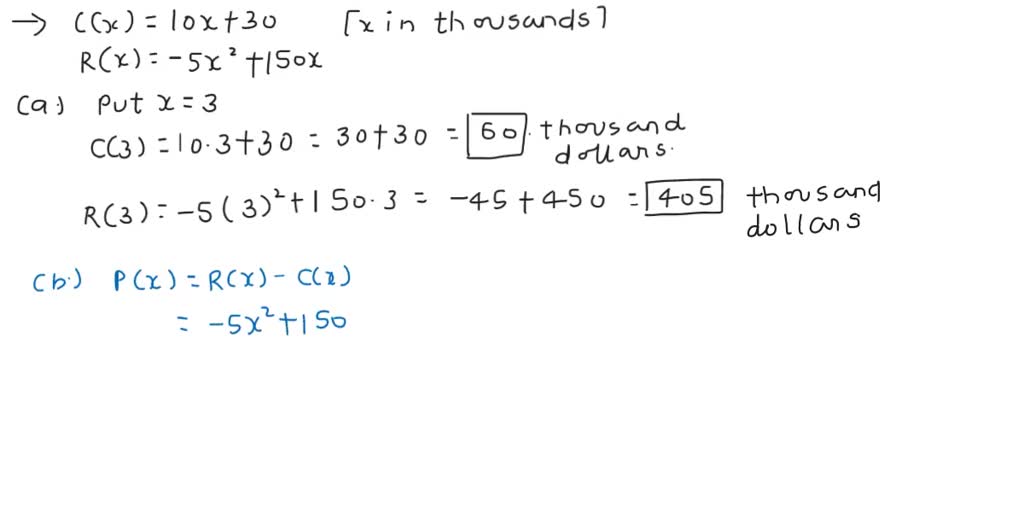 → C(x) = 10x+30 [x in thousands]
R(x) = -5x² +150x
(a) Put x = 3
C(3) = 10·3+30 = 30+30 = 60. thousand dollars.
R(3) = -5(3)² +150·3 = -45 + 450 = 405 thousand dollars
(b.) P(x) = R(x) - C(x)
= -5x² +150